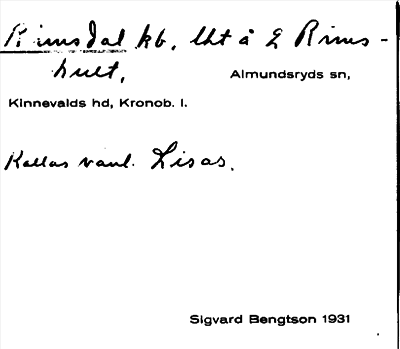 Rimsdal kb, lht å 2 Rims-
hult, Almundsryds sn,
Kinnevalds hd, Kronob. l.
Kallas vanl. Lisas.
Sigvard Bengtson 1931